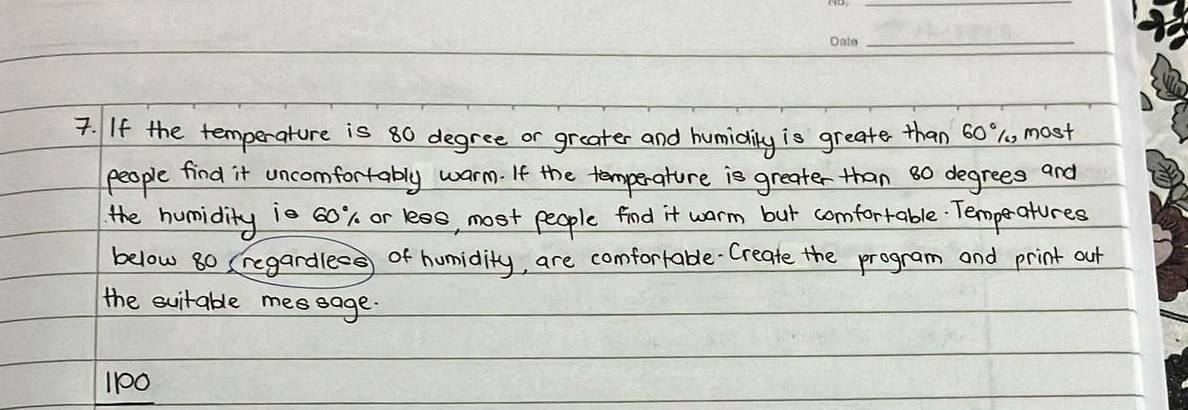 No.
Date
7. If the temperature is 80 degree or greater and humidity is greater than 60%, most
people find it uncomfortably warm. If the temperature is greater than 80 degrees and
the humidity is 60% or less, most people find it warm but comfortable. Temperatures
below 80 regardless of humidity, are comfortable. Create the program and print out
the suitable message.
IPO